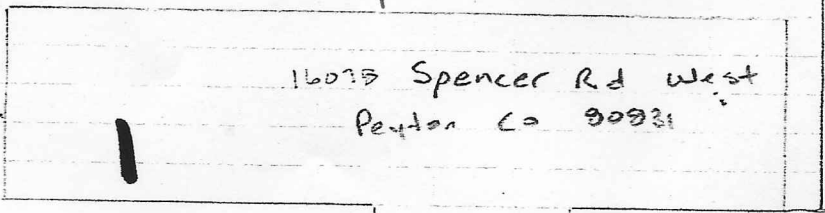 16075 Spencer Rd West
Peyton Co 80831